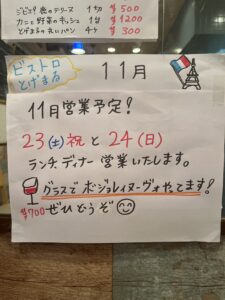 ジビエ！鹿のテリーヌ 1切 ¥500
カニと野菜のキッシュ 1台 ¥1200
とげまるの丸いパン 4ヶ ¥300
ビストロ
とげまる
11月
11月営業予定！
23(土)祝と24(日)
ランチ、ディナー営業いたします。
グラスでボージョレ、ヌーヴォやってます！
¥700 ぜひどうぞ